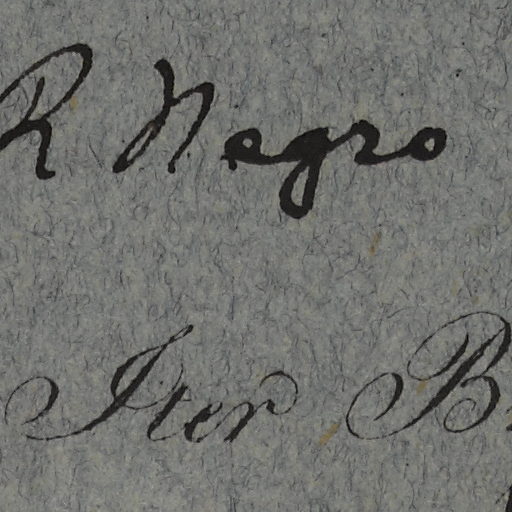 R Negro
Iter B